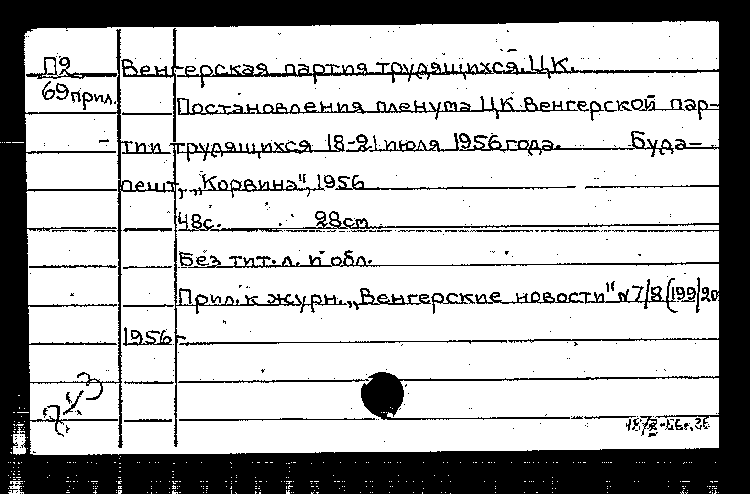 П2 Венгерская партия трудящихся. ЦК.
69 прил.
Постановления пленума ЦК Венгерской пар-
тии трудящихся 18-21 июля 1956 года. Буда-
пешт, „Корвина", 1956
48с. 28см
Без тит. л. и обл.
Прил. к журн. „Венгерские новости" № 7/8 (199/20
1956-